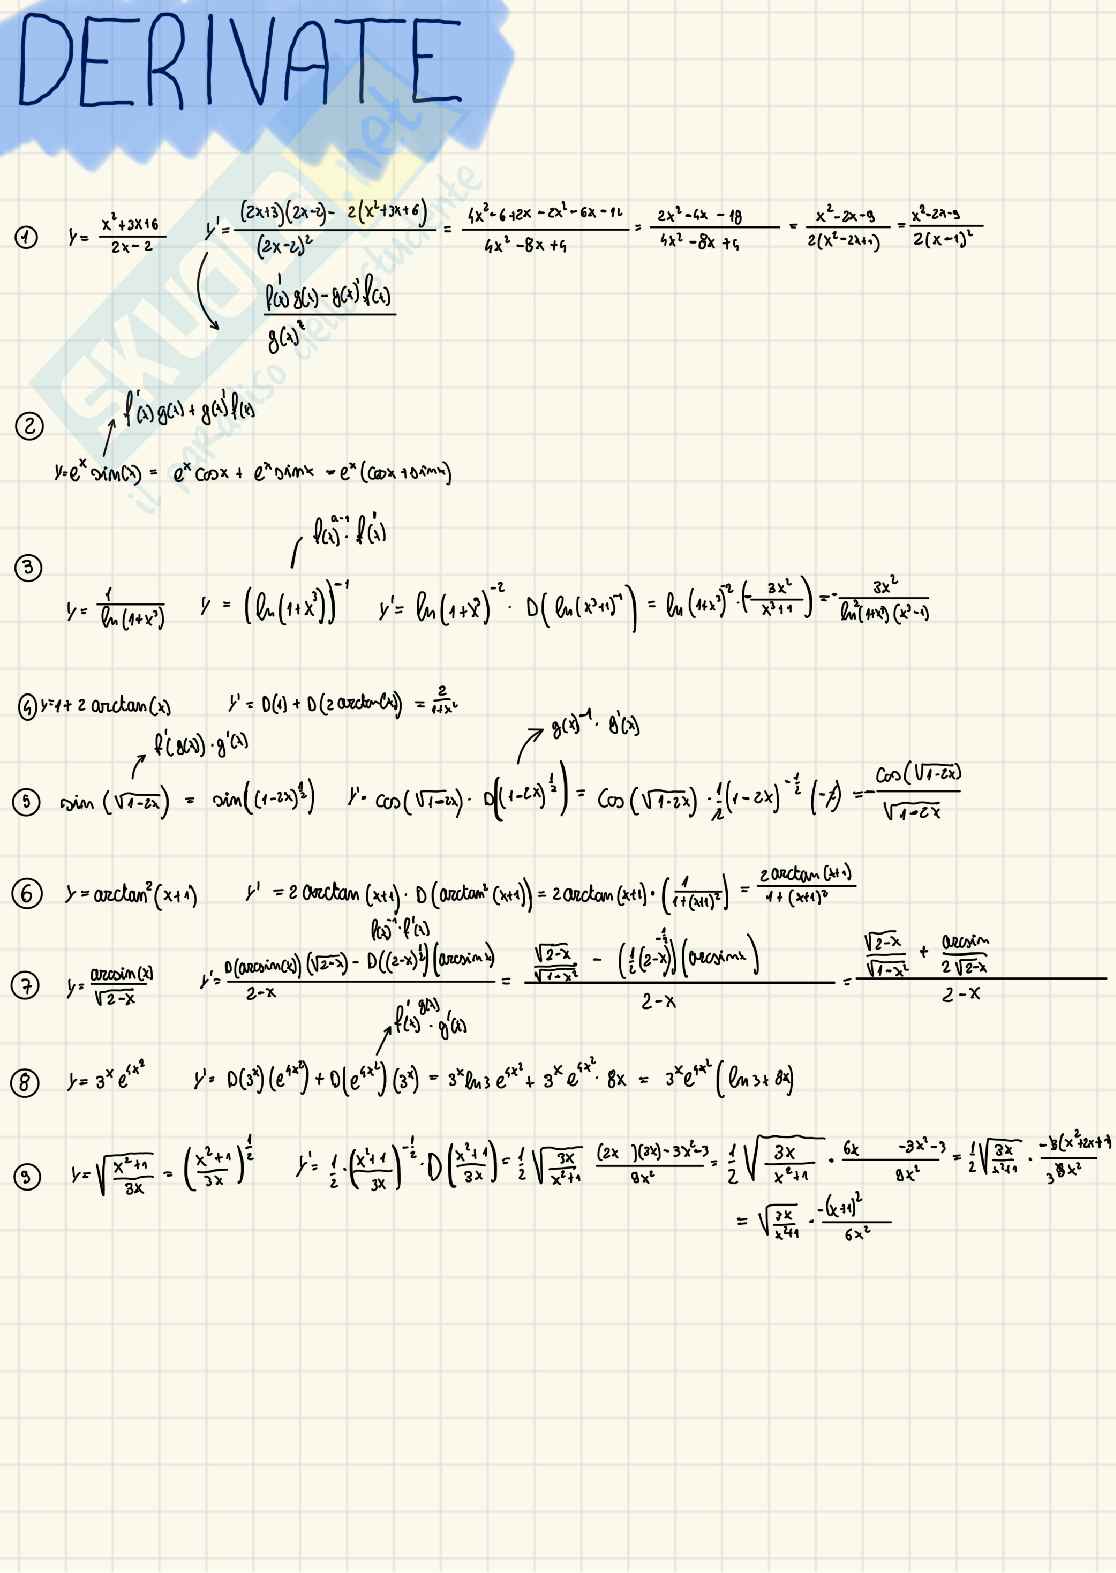 DERIVATE
① y = (x²+3x+6)/(2x-2) y' = ((2x+3)(2x-2) - 2(x²+3x+6))/(2x-2)² = (4x²-6+2x-2x²-6x-12)/(4x²-8x+4) = (2x²-4x-18)/(4x²-8x+4) = (x²-2x-9)/(2(x²-2x+1)) = (x²-2x-9)/(2(x-1)²)
(f(x)' g(x) - g(x)' f(x))/g(x)²
② f'(x) g(x) + g(x)' f(x)
y = eˣ sin(x) = eˣ cosx + eˣ sinx = eˣ (cosx + sinx)
③ f(x)ᵃ⁻¹ · f'(x)
y = 1/ln(1+x³) y = (ln(1+x³))⁻¹ y' = ln(1+x³)⁻² · D(ln(x³+1)⁻¹) = ln(1+x³)⁻² · (-3x²/(x³+1)) = -3x²/(ln²(1+x³)(x³-1))
④ y = 1+2 arctan(x) y' = D(1) + D(2 arctan(x)) = 2/(1+x²)
f'(g(x)) · g'(x) g(x)⁻¹ · g'(x)
⑤ sin(√(1-2x)) = sin((1-2x)^½) y' = cos(√(1-2x)) · D((1-2x)^½) = cos(√(1-2x)) · ½(1-2x)^-½ (-2) = -cos(√(1-2x))/√(1-2x)
⑥ y = arctan²(x+1) y' = 2 arctan(x+1) · D(arctan²(x+1)) = 2 arctan(x+1) · (1/(1+(x+1)²)) = 2 arctan(x+1)/(1+(x+1)²)
f(x)⁻¹ · f'(x)
⑦ y = arcsin(x)/√(2-x) y' = (D(arcsin(x))(√(2-x)) - D((2-x)^½)(arcsinx))/(2-x) = (√(2-x)/√(1-x²) - (½(2-x)^-½)(arcsinx))/(2-x) = (√(2-x)/√(1-x²) + arcsin/(2√(2-x)))/(2-x)
f'(x)^g(x) · g'(x)
⑧ y = 3ˣ e^4x² y' = D(3ˣ)(e^4x²) + D(e^4x²)(3ˣ) = 3ˣ ln3 e^4x² + 3ˣ e^4x² · 8x = 3ˣ e^4x² (ln3 + 8x)
⑨ y = √((x²+1)/3x) = ((x²+1)/3x)^½ y' = ½ · ((x²+1)/3x)^-½ · D((x²+1)/3x) = ½ √(3x/(x²+1)) ((2x)(3x) - 3x²-3)/9x² = ½ √(3x/(x²+1)) · (6x -3x²-3)/9x² = ½ √(3x/(x²+1)) · -3(x²+2x+1)/3 9x²
= √(3x/(x²+1)) · -(x+1)²/6x²
SKUOLA.net
il paradiso dello studente